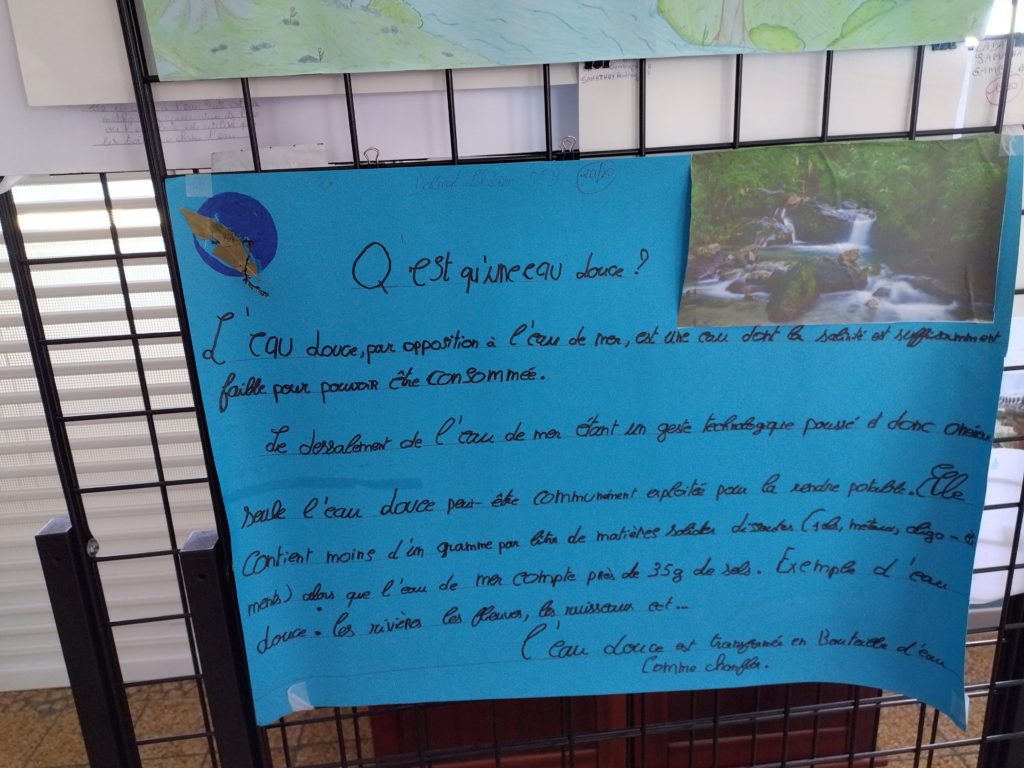 SAMATHOY
20/20
Q'est qu'une eau douce ?
L'eau douce, par opposition à l'eau de mer, est une eau dont la salinité est suffisamment
faible pour pouvoir être consommée.
Le dessalement de l'eau de mer étant un geste technologique poussé et donc onéreux
seule l'eau douce peut être communément exploitée pour la rendre potable. Elle
contient moins d'un gramme par litre de matières solides dissoutes (sels, métaux, oligo-élé
ments) alors que l'eau de mer compte près de 35g de sels. Exemple d'eau
douce : les rivières les fleuves, les ruisseaux ect...
L'eau douce est transformée en Bouteille d'eau
Comme chanflor.